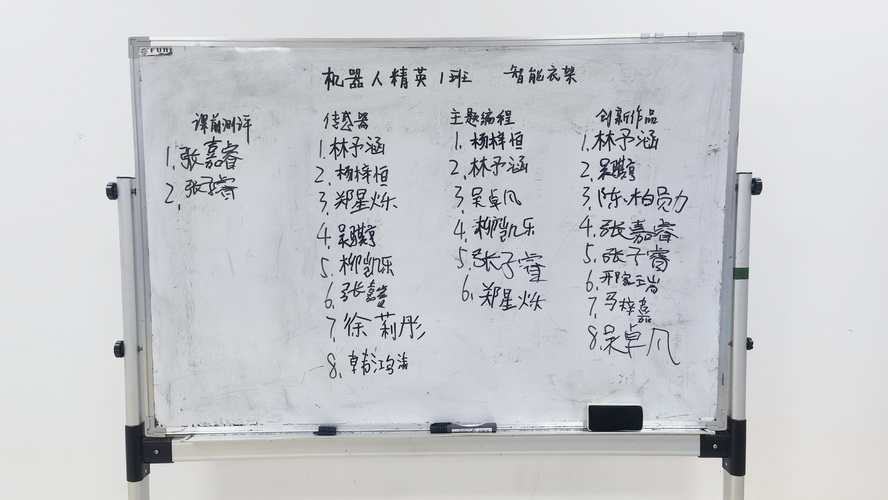 机器人精英1班 智能衣架
课前测评
1.张嘉睿
2.张子睿
传感器
1.林予涵
2.杨梓恒
3.郑星烁
4.吴骐享
5.柳凯乐
6.张嘉睿
7.徐莉彤
8.韩江
主题编程
1.杨梓恒
2.林予涵
3.吴卓凡
4.柳凯乐
5.张子睿
6.郑星烁
创新作品
1.林予涵
2.吴骐享
3.陈柏员力
4.张嘉睿
5.张子睿
6.邢
7.马梓嘉
8.吴卓凡